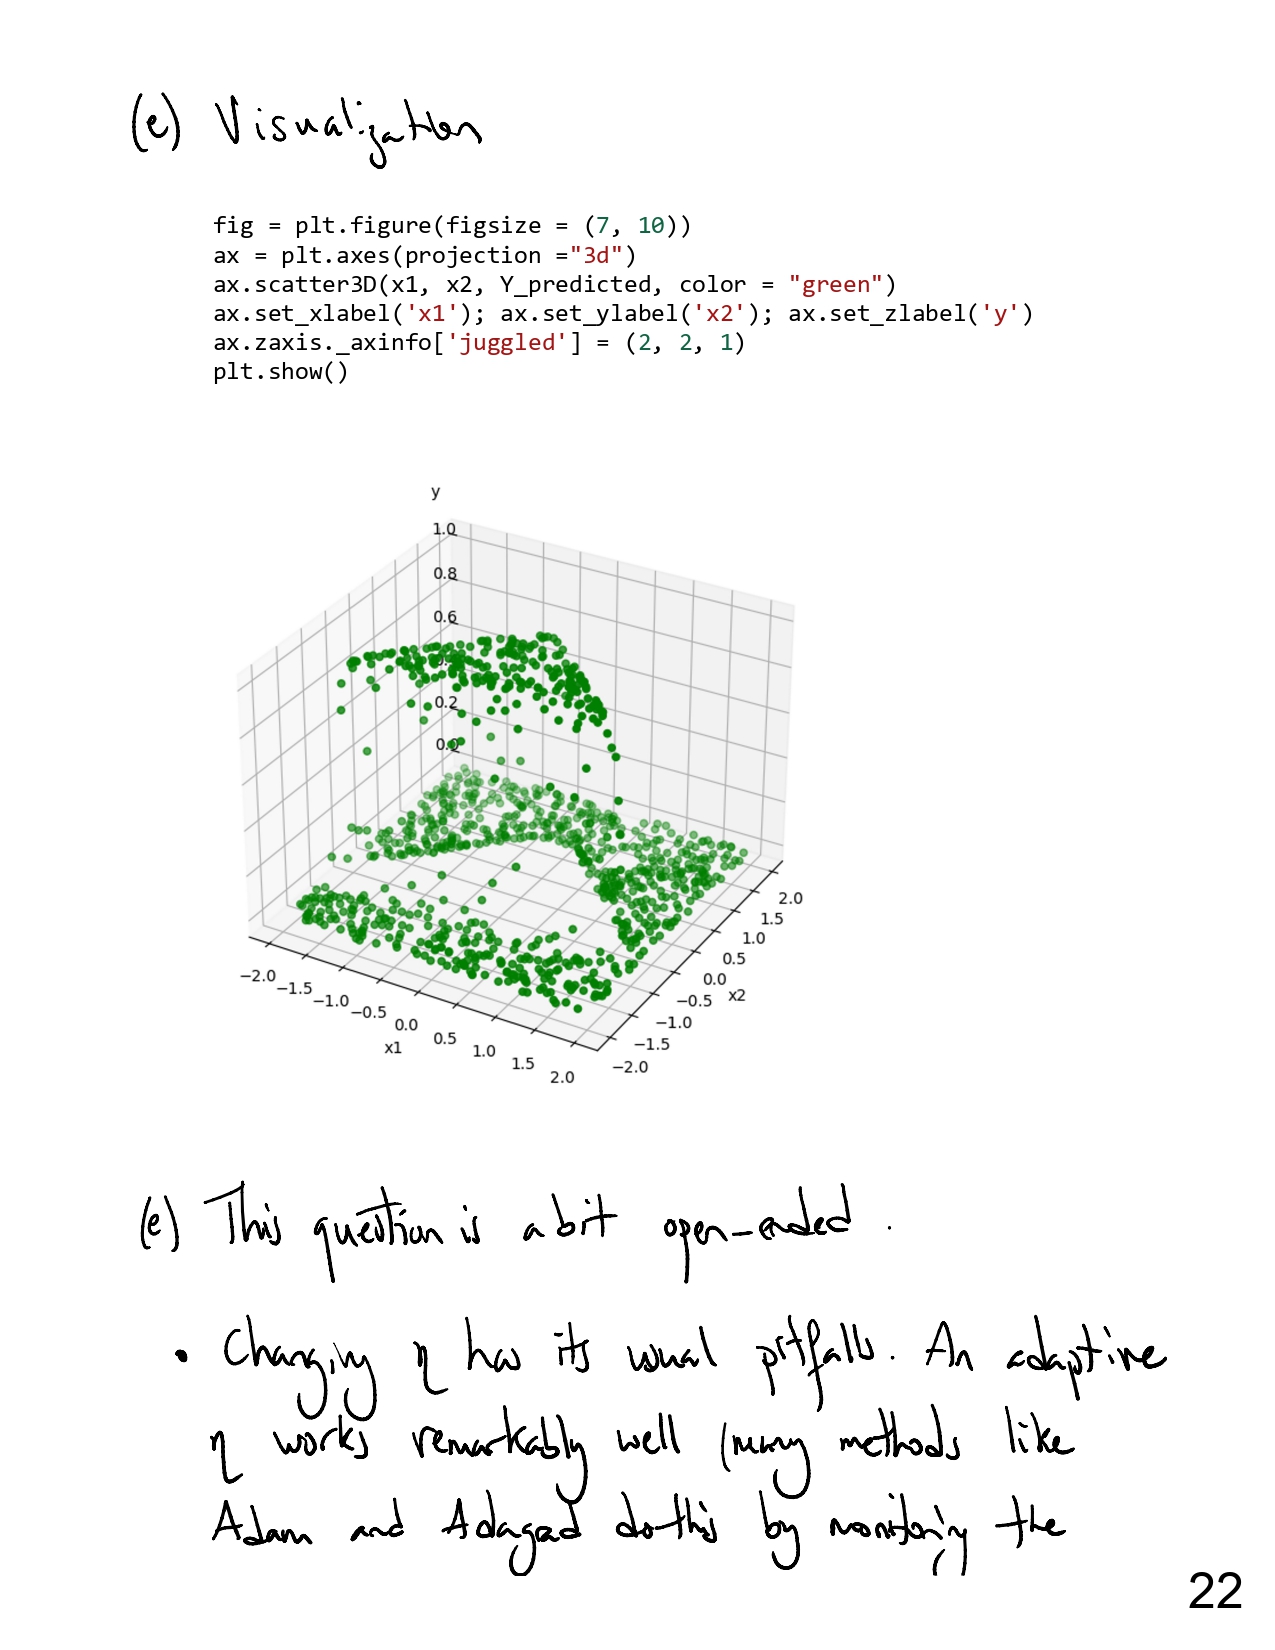 (e) Visualization
fig = plt.figure(figsize = (7, 10))
ax = plt.axes(projection ="3d")
ax.scatter3D(x1, x2, Y_predicted, color = "green")
ax.set_xlabel('x1'); ax.set_ylabel('x2'); ax.set_zlabel('y')
ax.zaxis._axinfo['juggled'] = (2, 2, 1)
plt.show()
y
1.0
0.8
0.6
0.2
0.0
−2.0
−1.5
−1.0
−0.5
0.0
0.5
1.0
1.5
2.0
x1
2.0
1.5
1.0
0.5
0.0
−0.5
−1.0
−1.5
−2.0
x2
(e) This question is a bit open-ended.
• Changing η has its usual pitfalls. An adaptive
η works remarkably well (many methods like
Adam and Adagad do this by monitoring the
22